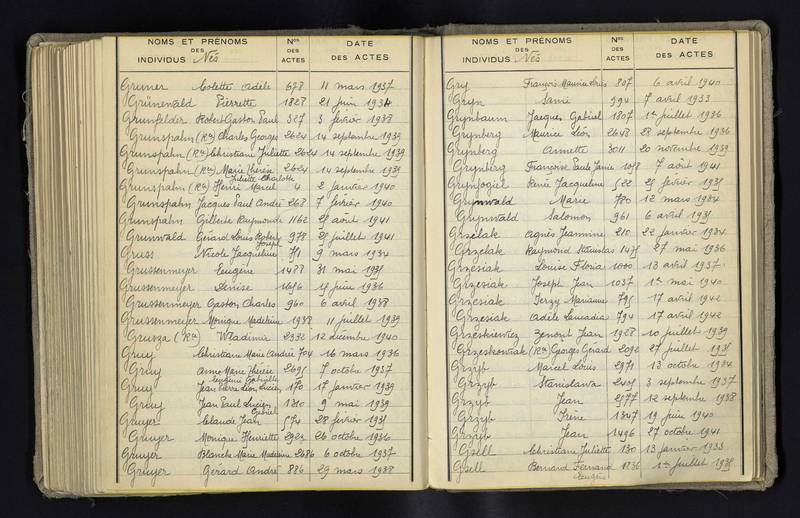 NOMS ET PRÉNOMS DES INDIVIDUS Nés
Nos DES ACTES
DATE DES ACTES
Greiner Colette Adèle 678 11 mars 1937
Grünewald Pierrette 1828 21 juin 1934
Grunfelder Robert Gaston Paul 327 3 février 1938
Grunspahn (Rn) Charles Georges 2624 14 septembre 1939
Grunspahn (Rn) Christiane Juliette 2624 14 septembre 1939
Grunspahn (Rn) Marie Thérèse 2624 14 septembre 1939
Juliette Charlotte
Grunspahn (Rn) Henri Marcel 4 2 janvier 1940
Grunspahn Jacques Paul André 268 7 février 1940
Grunspahn Gilberte Raymonde 1162 25 août 1941
Grunwald Gérard Louis Robert 978 25 juillet 1941
Joseph
Gruss Nicole Jacqueline 751 9 mars 1934
Grussenmeyer Eugène 1488 31 mai 1935
Grussenmeyer Denise 1656 15 juin 1936
Grussenmeyer Gaston Charles 960 6 avril 1938
Grussenmeyer Monique Madeleine 1938 11 juillet 1939
Grusza (Rn) Wladimir 2932 12 décembre 1940
Gruy Christiane Marie Andrée 704 16 mars 1936
Gruy Anne Marie Thérèse 2695 7 octobre 1937
Eugénie Gabrielle
Gruy Jean Pierre Léon Lucien 170 17 janvier 1939
Gruy Jean Paul Lucien 1310 9 mai 1939
Gabriel
Gruyer Claude Jean 574 28 février 1931
Gruyer Monique Henriette 2929 26 octobre 1936
Gruyer Blanche Marie Madeleine 2686 6 octobre 1937
Gruyer Gérard André 886 29 mars 1938
NOMS ET PRÉNOMS DES INDIVIDUS Nés
Nos DES ACTES
DATE DES ACTES
Gry François Maurice Louis 807 6 avril 1940
Gryn Samü 994 7 avril 1933
Grynbaum Jacques Gabriel 1807 1er juillet 1936
Grynberg Maurice Léon 2648 28 septembre 1936
Grynberg Annette 3011 20 novembre 1939
Grynberg Françoise Paule Janie 1058 7 août 1941
Grynfogiel Renée Jacqueline 522 25 février 1935
Grynwald Marie 780 12 mars 1934
Grynwald Salomon 961 6 avril 1935
Grzelak Agnès Jeannine 210 22 janvier 1934
Grzelak Raymond Stanislas 1475 27 mai 1936
Grzesiak Louise Floria 1000 13 avril 1937
Grzesiak Joseph Jean 1037 1er mai 1940
Grzesiak Jerzy Marianne 795 17 avril 1942
Grzesiak Adèle Leucadia 794 17 avril 1942
Grzeskiewiez Zenoist Jean 1928 10 juillet 1939
Grzeskowiak (Rn) Georges Gérard 2092 27 juillet 1935
Grzyb Marcel Louis 2971 13 octobre 1934
Grzyb Stanislawa 2405 3 septembre 1937
Grzyb Jean 2577 12 septembre 1938
Grzyb Irène 1347 19 juin 1940
Grzyb Jean 1496 27 octobre 1941
Gsell Christiane Juliette 130 13 janvier 1933
Gsell Bernard Fernand 1836 1er juillet 1935
Eugène